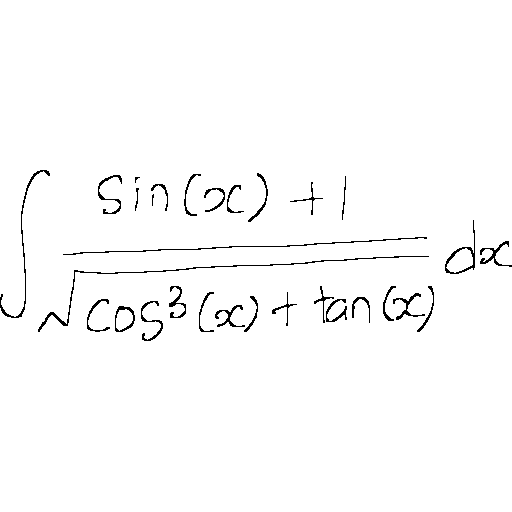 \int \frac{\sin(x) + 1}{\sqrt{\cos^3(x) + \tan(x)}} dx